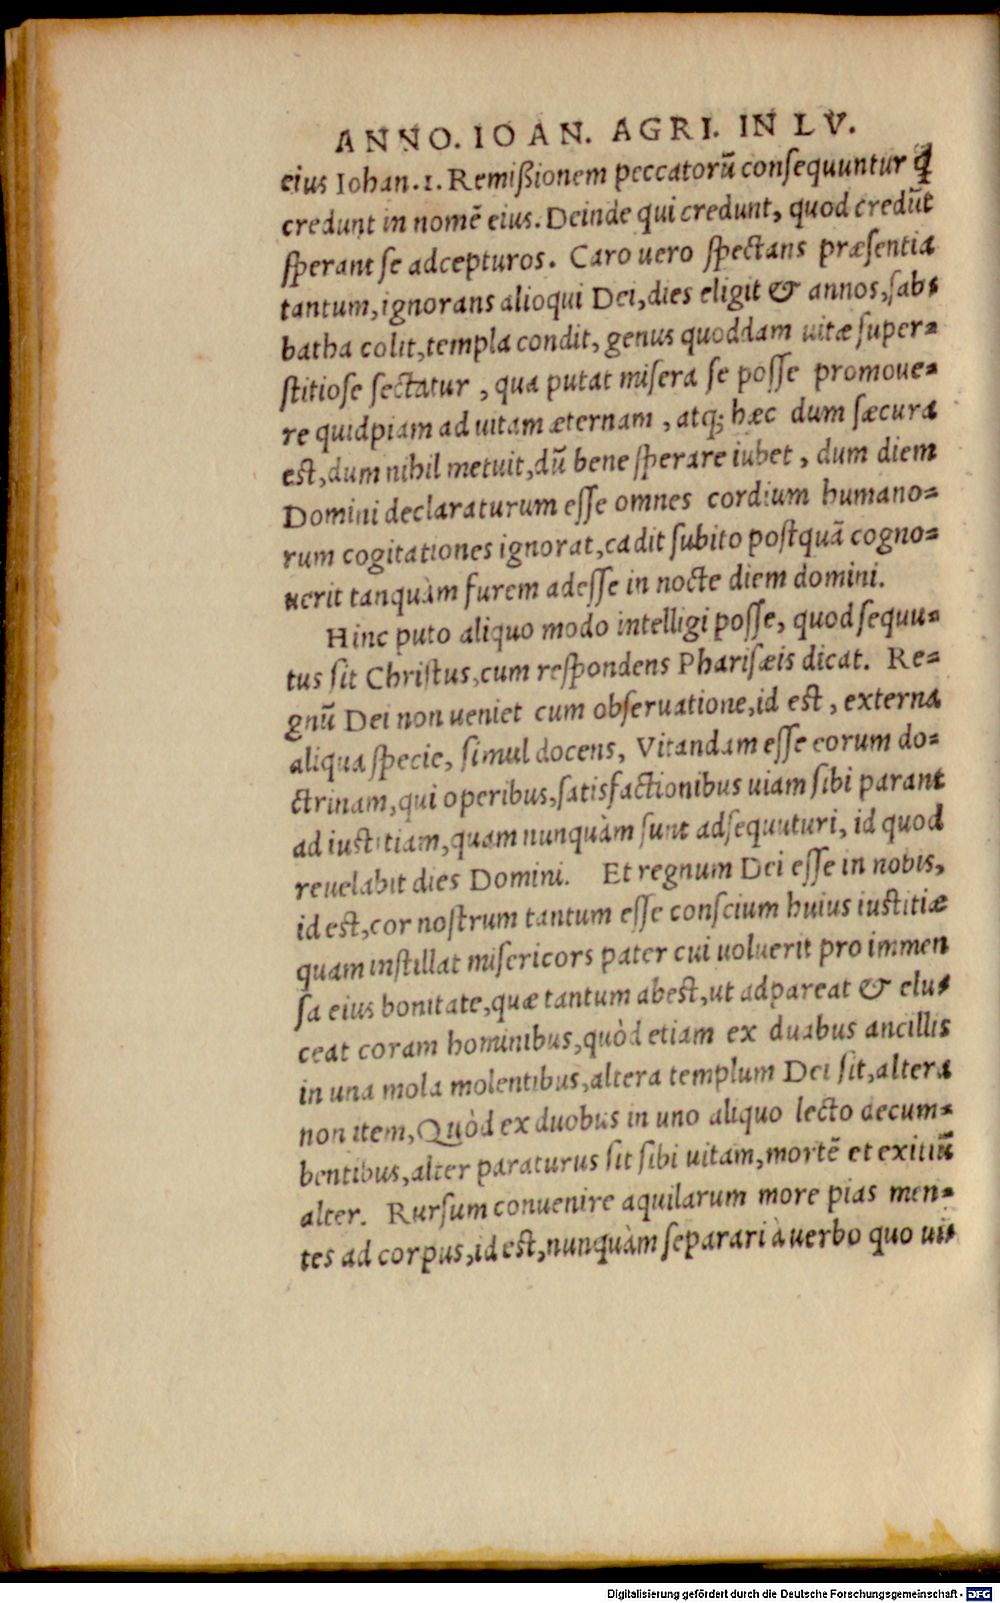 ANNO. IOAN. AGRI. IN LV.
eius Iohan. 1. Remißionem peccatorũ consequuntur ꝗ
credunt in nomẽ eius. Deinde qui credunt, quod credũt
sperant se adcepturos. Caro uero spectans præsentia
tantum, ignorans alioqui Dei, dies eligit & annos, sab-
batha colit, templa condit, genus quoddam uitæ super-
stitiose sectatur, qua putat misera se posse promoue-
re quidpiam ad uitam æternam, atq; hæc dum sæcura
est, dum nihil metuit, dũ bene sperare iubet, dum diem
Domini declaraturum esse omnes cordium humano-
rum cogitationes ignorat, cadit subito postquã cogno-
uerit tanquàm furem adesse in nocte diem domini.
Hinc puto aliquo modo intelligi posse, quod sequu-
tus sit Christus, cum respondens Pharisæis dicat. Re-
gnũ Dei non ueniet cum obseruatione, id est, externa
aliqua specie, simul docens, Vitandam esse eorum do-
ctrinam, qui operibus, satisfactionibus uiam sibi parant
ad iustitiam, quam nunquàm sunt adsequuturi, id quod
reuelabit dies Domini. Et regnum Dei esse in nobis,
id est, cor nostrum tantum esse conscium huius iustitiæ
quam instillat misericors pater cui uoluerit pro immen
sa eius bonitate, quæ tantum abest, ut adpareat & elu-
ceat coram hominibus, quòd etiam ex duabus ancillis
in una mola molentibus, altera templum Dei sit, altera
non item, Quòd ex duobus in uno aliquo lecto aecum-
bentibus, alter paraturus sit sibi uitam, mortẽ et exitiũ
alter. Rursum conuenire aquilarum more pias men-
tes ad corpus, id est, nunquàm separari à uerbo quo uii
Digitalisierung gefördert durch die Deutsche Forschungsgemeinschaft - DFG